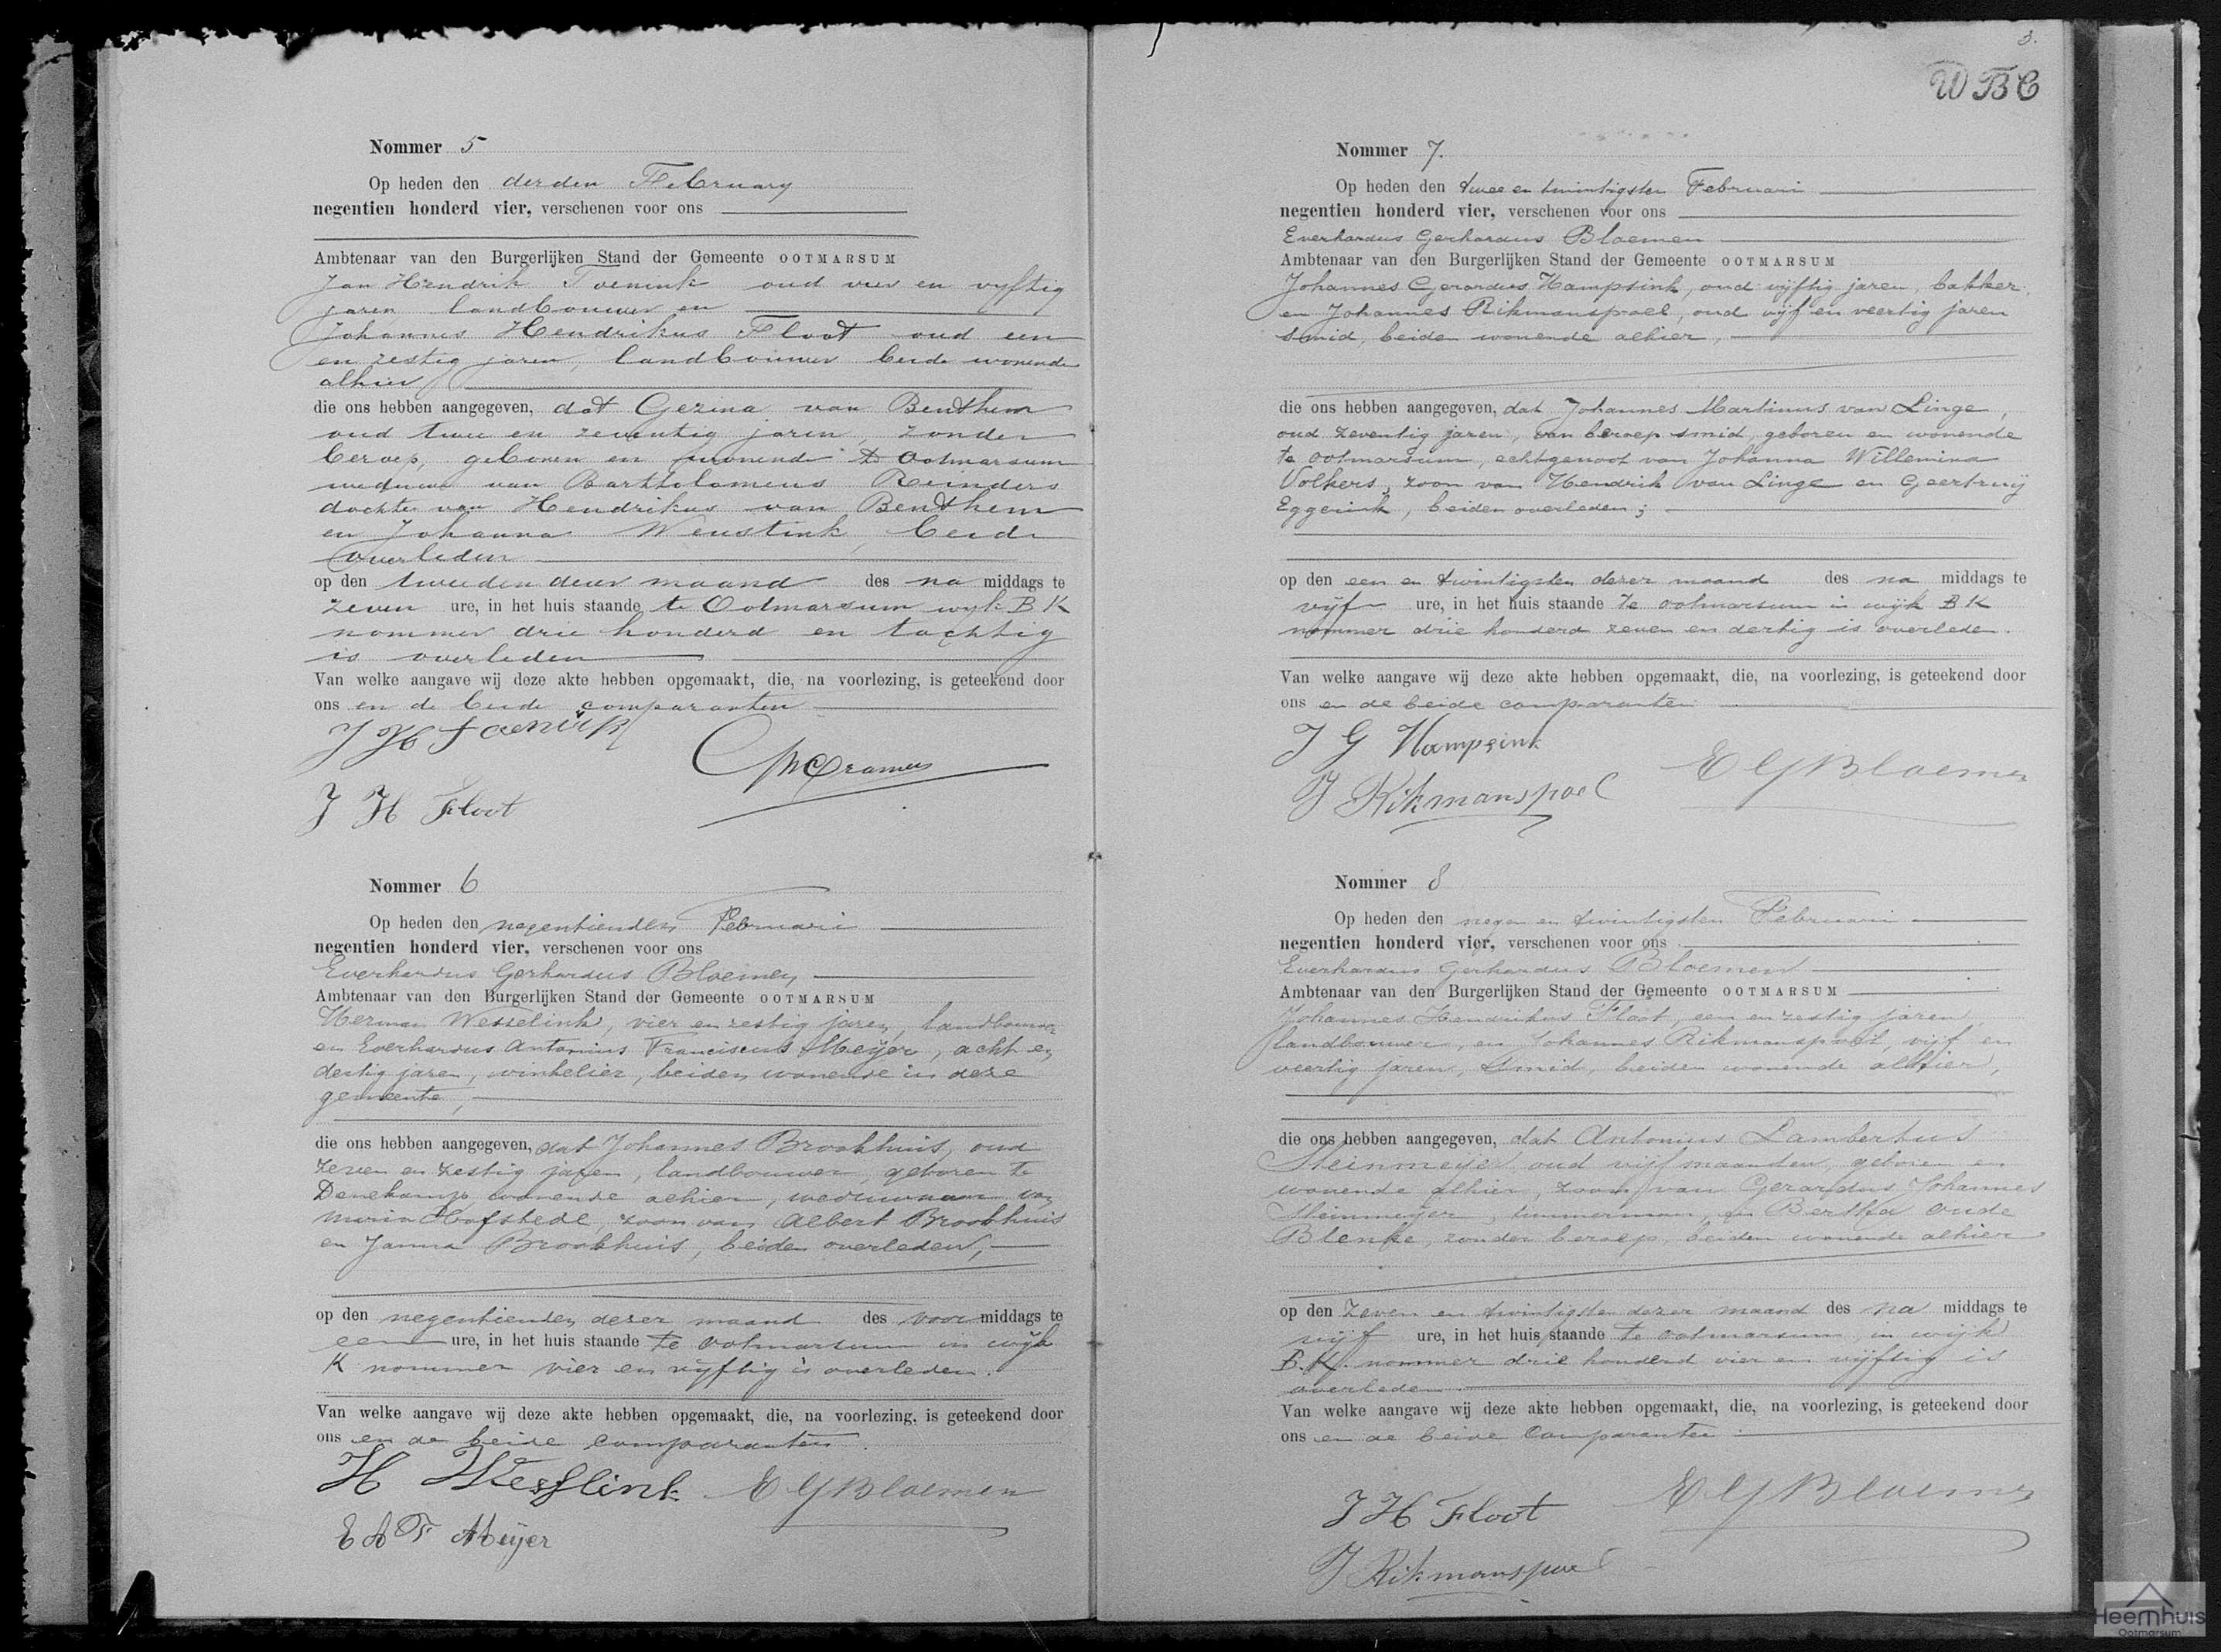 Nommer 5
Op heden den derden February
negentien honderd vier, verschenen voor ons
Ambtenaar van den Burgerlijken Stand der Gemeente OOTMARSUM
Jan Hendrik oud vier en vyftig
jaren landbouwer en
Johannes Hendrikus Floot oud een
en zestig jaren, landbouwer beide wonende
alhier
die ons hebben aangegeven, dat Gezina van Benthem
oud twee en zeventig jaren, zonder
beroep, geboren en wonende te Ootmarsum
weduwe van Bartholomeus Reinders
dochter van Hendrikus van Benthem
en Johanna Weustink, beide
overleden
op den tweeden dezer maand des na middags te
zeven ure, in het huis staande te Ootmarsum wyk B K
nommer drie honderd en tachtig
is overleden
Van welke aangave wij deze akte hebben opgemaakt, die, na voorlezing, is geteekend door
ons en de beide comparanten
J H
Cramer
J H Floot
Nommer 6
Op heden den negentienden Februari
negentien honderd vier, verschenen voor ons
Everhardus Gerhardus Bloemen
Ambtenaar van den Burgerlijken Stand der Gemeente OOTMARSUM
Herman Wesselink, vier en zestig jaren, landbouwer
en Everhardus Antonius Franciscus Meijer, acht en
dertig jaren, winkelier, beiden wonende in deze
gemeente,
die ons hebben aangegeven, dat Johannes Brookhuis, oud
zeven en zestig jaren, landbouwer, geboren te
Denekamp wonende alhier, weduwnaar van
Maria Hofstede, zoon van Albert Brookhuis
en Janna Brookhuis, beiden overleden,
op den negentienden dezer maand des voormiddags te
een ure, in het huis staande te Ootmarsum in wijk
K nommer vier en vijftig is overleden.
Van welke aangave wij deze akte hebben opgemaakt, die, na voorlezing, is geteekend door
ons en de beide comparanten.
H Wesslink E G Bloemen
E A F Meijer
3.
WBC
Nommer 7.
Op heden den twee en twintigsten Februari
negentien honderd vier, verschenen voor ons
Everhardus Gerhardus Bloemen
Ambtenaar van den Burgerlijken Stand der Gemeente OOTMARSUM
Johannes Gerardus Hampsink, oud vijftig jaren, bakker,
en Johannes Rikmanspoel, oud vijf en veertig jaren
smid, beiden wonende alhier,
die ons hebben aangegeven, dat Johannes Martinus van Linge,
oud zeventig jaren, van beroep smid, geboren en wonende
te Ootmarsum, echtgenoot van Johanna Willemina
Volkers, zoon van Hendrik van Linge en Geertruij
Eggerink, beiden overleden;
op den een en twintigsten dezer maand des na middags te
vijf ure, in het huis staande te Ootmarsum in wijk B K
nommer drie honderd zeven en dertig is overleden.
Van welke aangave wij deze akte hebben opgemaakt, die, na voorlezing, is geteekend door
ons en de beide comparanten
J G Hampsink
E G Bloemen
J Rikmanspoel
Nommer 8
Op heden den negen en twintigsten Februari
negentien honderd vier, verschenen voor ons
Everhardus Gerhardus Bloemen
Ambtenaar van den Burgerlijken Stand der Gemeente OOTMARSUM
Johannes Hendrikus Floot, een en zestig jaren,
landbouwer, en Johannes Rikmanspoel, vijf en
veertig jaren, smid, beiden wonende alhier,
die ons hebben aangegeven, dat Antonius Lambertus
Steinmeijer, oud vijf maanden, geboren en
wonende alhier, zoon van Gerardus Johannes
Steinmeijer, timmerman, en Bertha Oude
Blenke, zonder beroep, beiden wonende alhier
op den zeven en twintigsten dezer maand des na middags te
vijf ure, in het huis staande te Ootmarsum, in wijk
B.K. nommer drie honderd vier en vijftig is
overleden
Van welke aangave wij deze akte hebben opgemaakt, die, na voorlezing, is geteekend door
ons en de beide Comparanten
J H Floot
E G Bloemen
J Rikmanspoel
Heemhuis
Ootmarsum